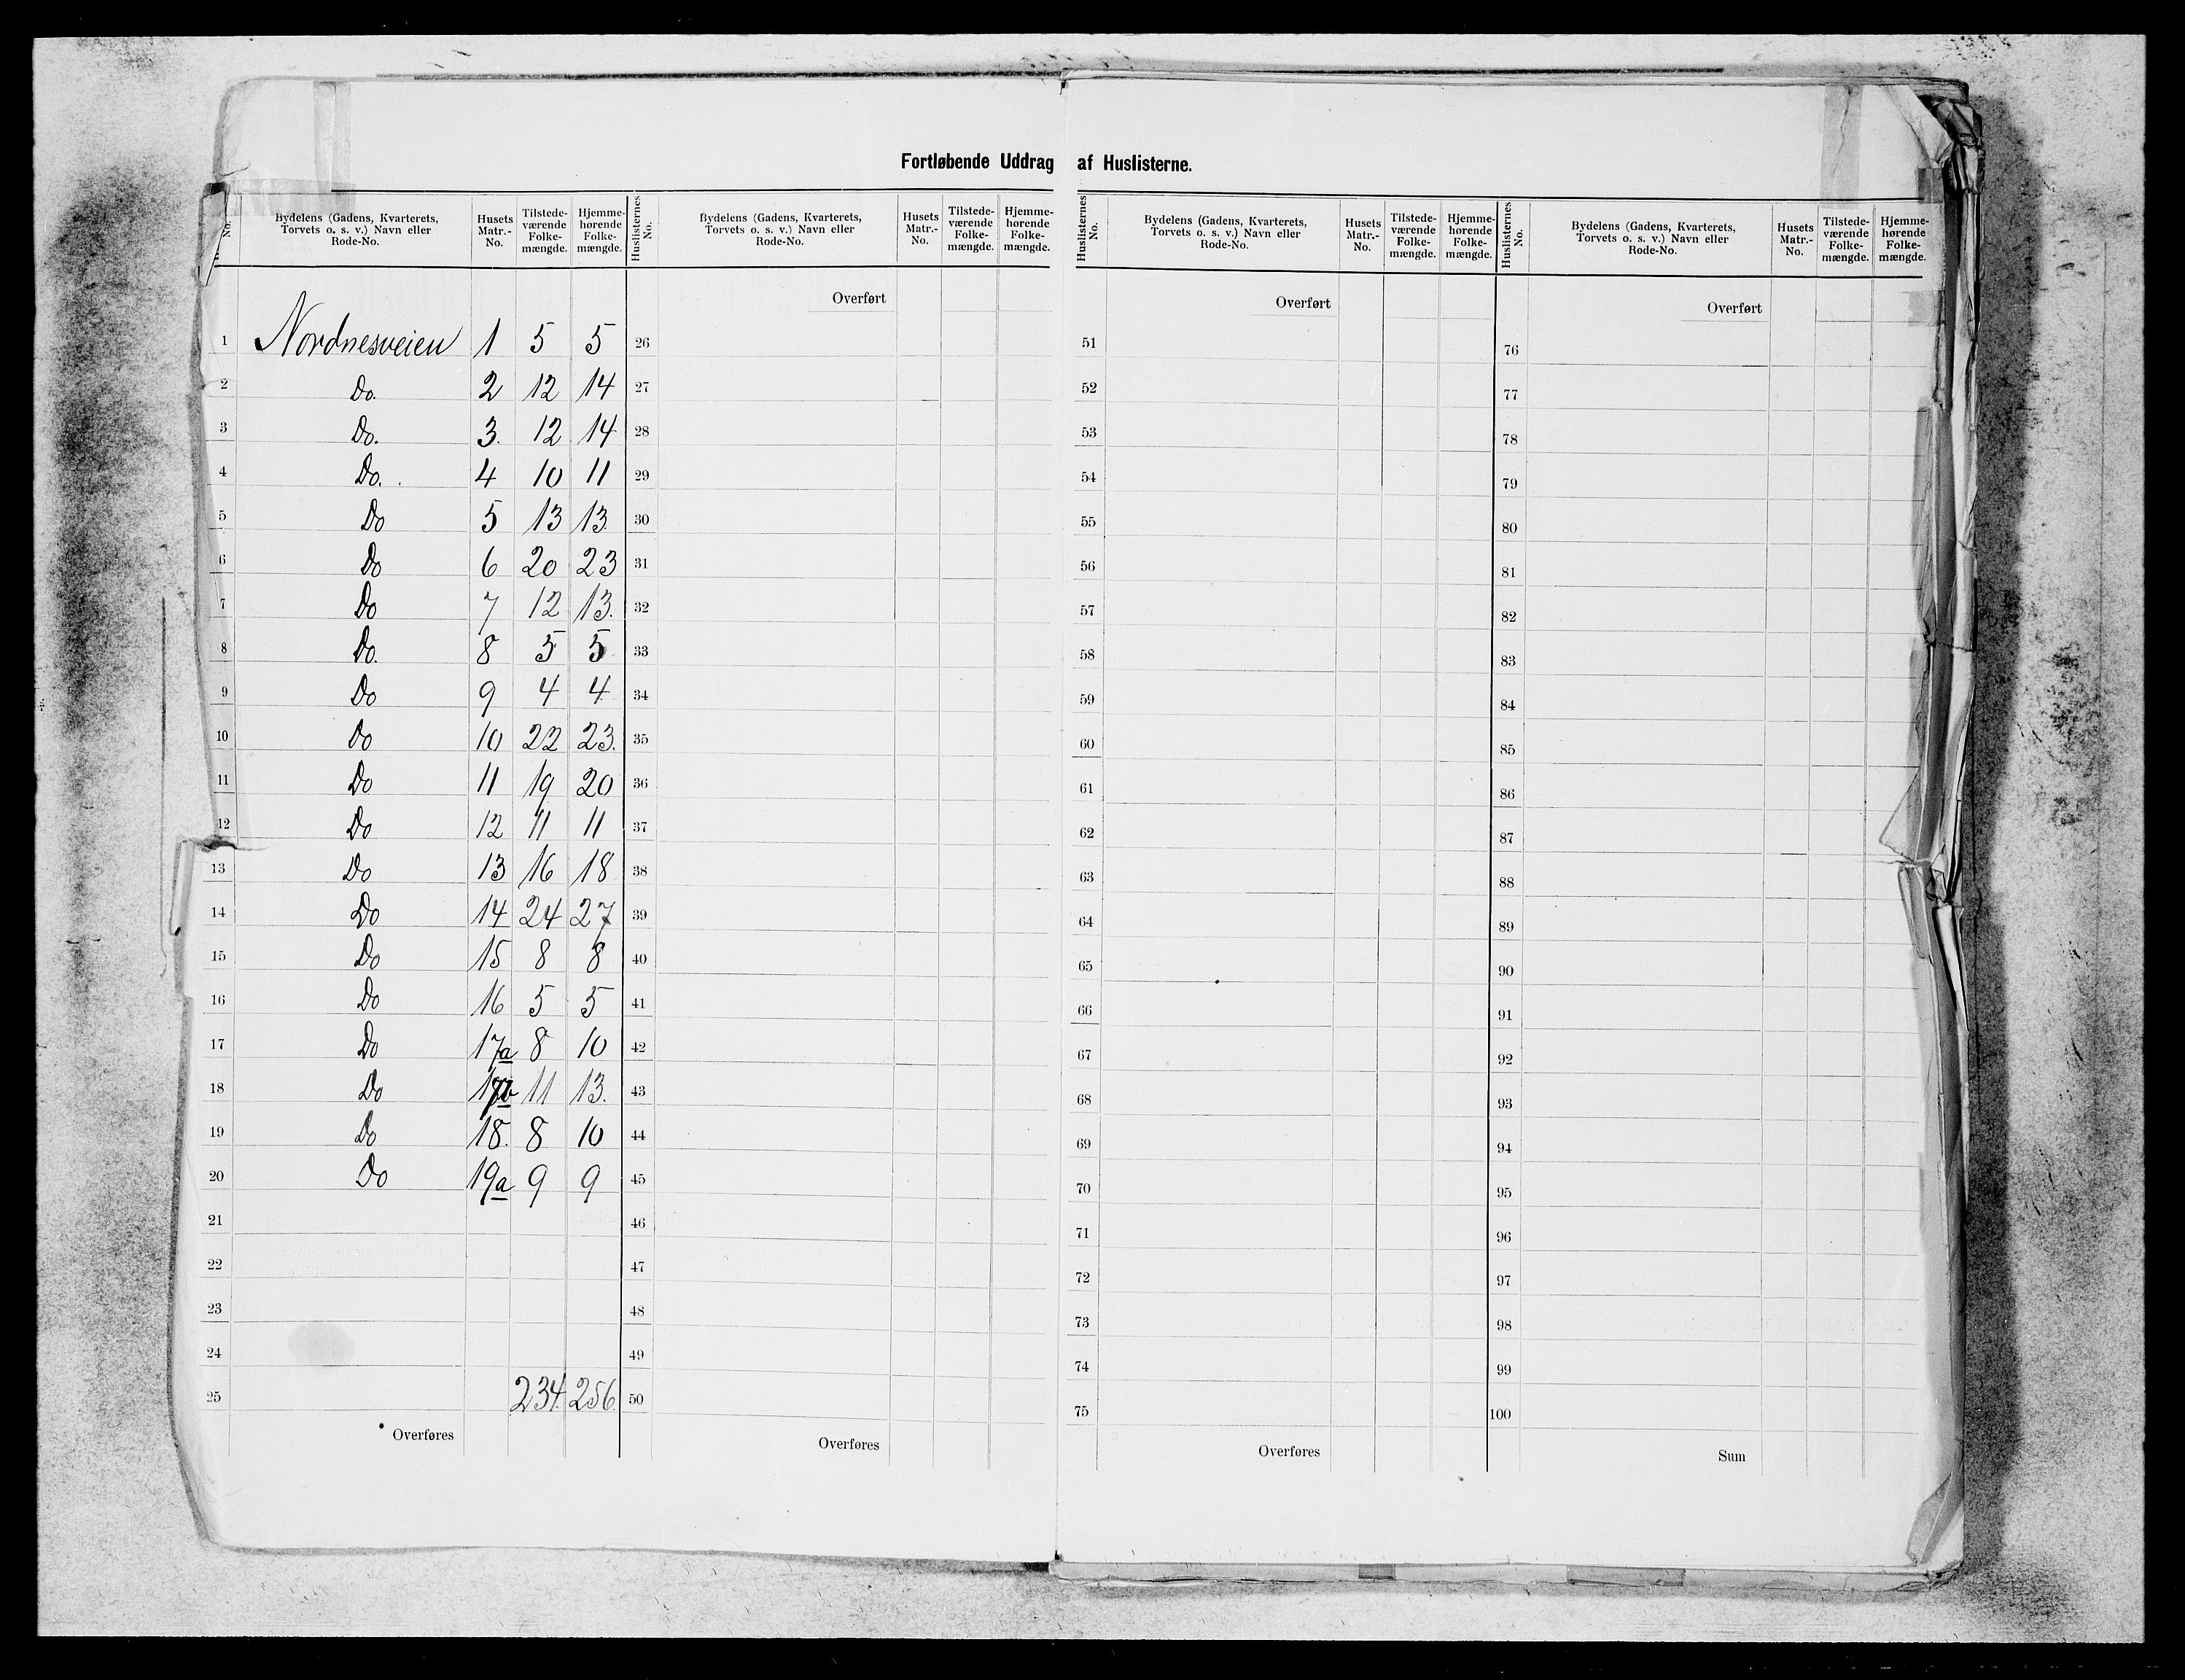 Fortløbende Uddrag af Huslisterne.
No. Bydelens (Gadens, Kvarterets, Torvets o. s. v.) Navn eller Rode-No. Husets Matr.-No. Tilstedeværende Folkemængde. Hjemmehørende Folkemængde.
1 Nordnesveien 1 5 5
2 Do. 2 12 14
3 Do. 3. 12 14
4 Do. 4 10 11
5 Do 5 13 13.
6 Do 6 20 23
7 Do 7 12 13.
8 Do. 8 5 5
9 Do 9 4 4
10 Do 10 22 23.
11 Do 11 19 20
12 Do 12 11 11
13 Do 13 16 18
14 Do 14 24 27
15 Do 15 8 8
16 Do 16 5 5
17 Do 17a 8 10
18 Do 17b 11 13.
19 Do 18. 8 10
20 Do 19a 9 9
21
22
23
24
25 234. 256.
Overføres
Huslisternes No. Bydelens (Gadens, Kvarterets, Torvets o. s. v.) Navn eller Rode-No. Husets Matr.-No. Tilstedeværende Folkemængde. Hjemmehørende Folkemængde.
Overført
26
27
28
29
30
31
32
33
34
35
36
37
38
39
40
41
42
43
44
45
46
47
48
49
50
Overføres
Huslisternes No. Bydelens (Gadens, Kvarterets, Torvets o. s. v.) Navn eller Rode-No. Husets Matr.-No. Tilstedeværende Folkemængde. Hjemmehørende Folkemængde.
Overført
51
52
53
54
55
56
57
58
59
60
61
62
63
64
65
66
67
68
69
70
71
72
73
74
75
Overføres
Huslisternes No. Bydelens (Gadens, Kvarterets, Torvets o. s. v.) Navn eller Rode-No. Husets Matr.-No. Tilstedeværende Folkemængde. Hjemmehørende Folkemængde.
Overført
76
77
78
79
80
81
82
83
84
85
86
87
88
89
90
91
92
93
94
95
96
97
98
99
100
Sum